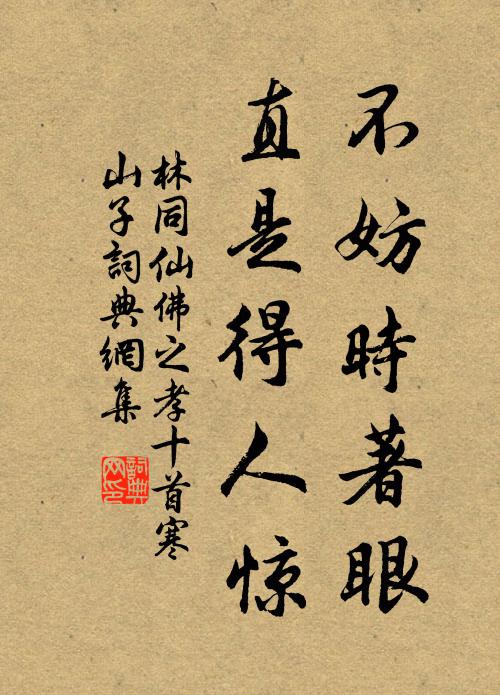 不妨時著眼
直是得人惊
林同仙佛之孝十首寒
山子詞典網集
詞典网印